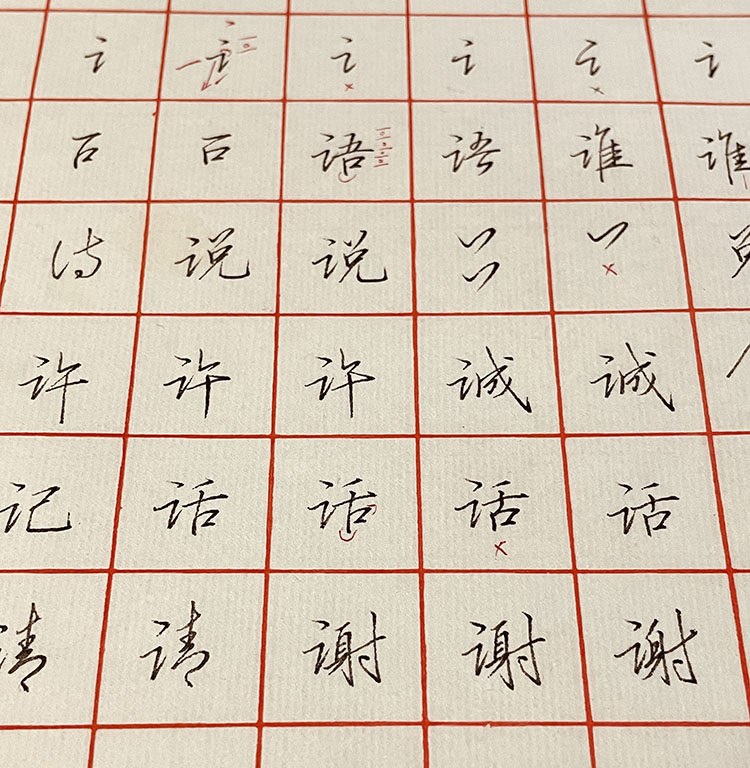 讠 讠 讠 讠 讠 讠
语 语 谁 谁
说 说
许 许 许 诚 诚
记 话 话 话 话
请 请 谢 谢 谢